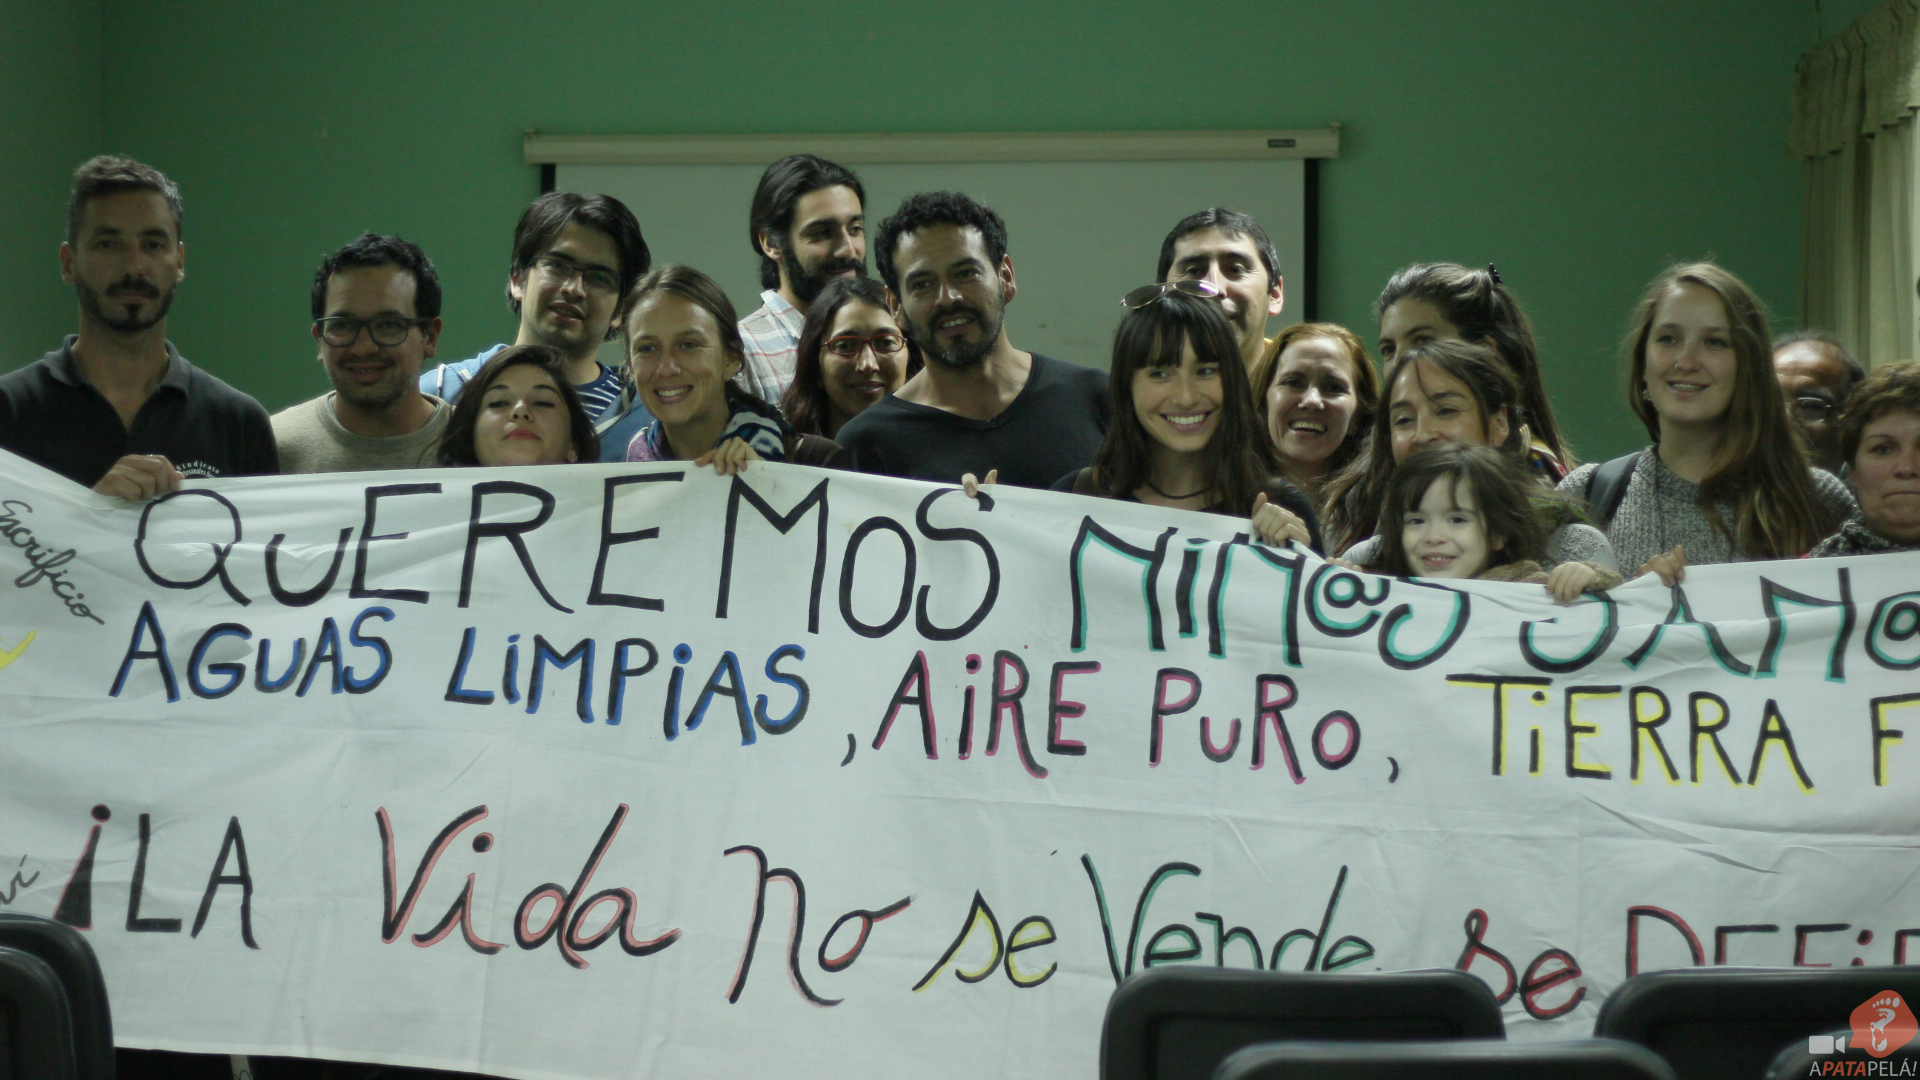 Sindicato
Sacrificio
QUEREMOS NiÑ@S SAN@
AGUAS LiMPiAS, AiRE PURO, TiERRA F
¡LA Vida no se Vende se DEFiE
APATAPELÁ!